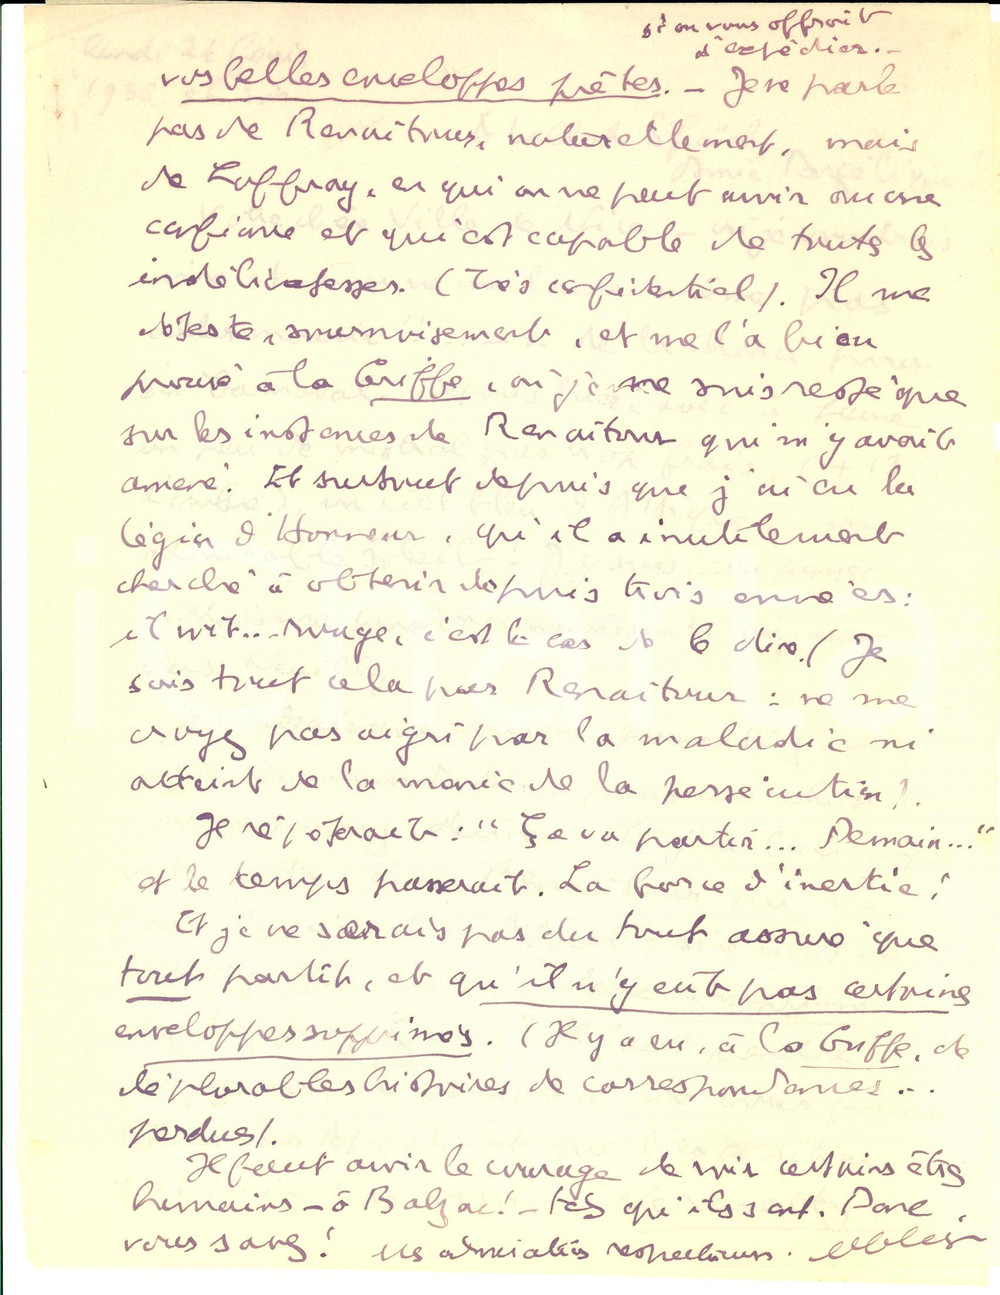 si on vous offrait
d'expédier. -
vos belles enveloppes prêtes. - Je ne parle
pas de Renaitour, naturellement, mais
de Loffroy, en qui on ne peut avoir aucune
confiance et qui est capable de toutes les
indélicatesses. (Très confidentiel). Il me
déteste, sournoisement, et me l'a bien
prouvé à la Griffe, où je ne suis resté que
sur les instances de Renaitour qui m'y avait
amené. Et surtout depuis que j'ai eu la
Légion d'Honneur, qu'il a inutilement
cherché à obtenir depuis trois années:
il vit... rouge, c'est le cas de le dire. (Je
sais tout cela par Renaitour: ne me
croyez pas aigri par la maladie ni
atteint de la manie de la persécution).
Je répéterait: "Ça va partir... Demain..."
et le temps passerait. La force d'inertie!
Et je ne serais pas du tout assuré que
tout partît, et qu'il n'y eût pas certaines
enveloppes supprimées. (Il y a eu, à la Griffe, de
déplorables histoires de correspondances...
perdues).
Il faut avoir le courage de voir certains êtres
humains - ô Balzac! - tels qu'ils sont. Donc,
vous savez! Mes amitiés respectueuses.